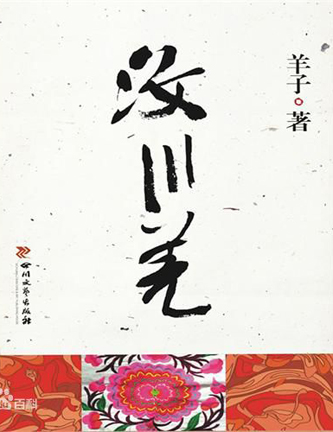 汶川羌
羊子·著
四川文艺出版社
百科